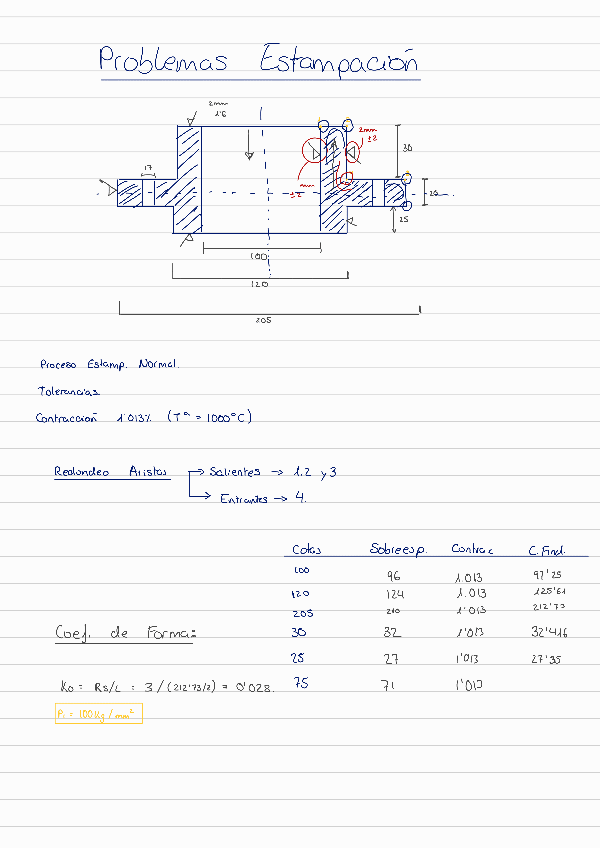 Problemas Estampación
2mm
1'6
2mm
±2
30
17
mm
±2
20
25
100
120
205
Proceso Estamp. Normal.
Tolerancias
Contracción 1'013% (Tª = 1000°C)
Redondeo Aristas → Salientes → 1.2 y 3
→ Entrantes → 4.
Cotas Sobreesp. Contrac C.Final.
100 96 1.013 97'25
120 124 1.013 125'61
205 210 1'013 212'73
Coef. de Forma: 30 32 1'013 32'416
25 27 1'013 27'35
Ko = Rs/L = 3/(212'73/2) = 0'028. 75 71 1'013
Pi = 100 Kg/mm²